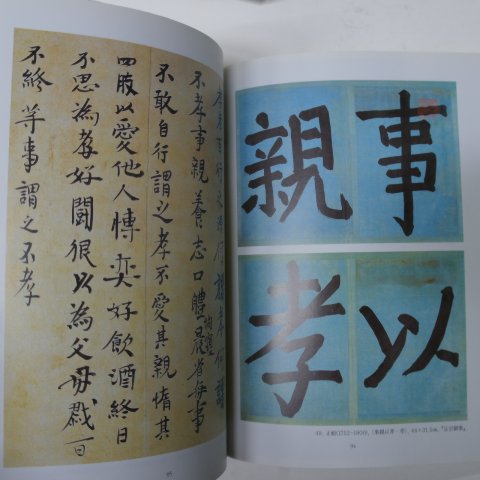 事
親
以
孝
94
不孝事親養志口體晨省每事
不敢自行謂之孝不愛其親惰其
四肢以愛他人博奕好飲酒終日
不思為孝好鬪很以為父母戮一日
不終等事謂之不孝
95